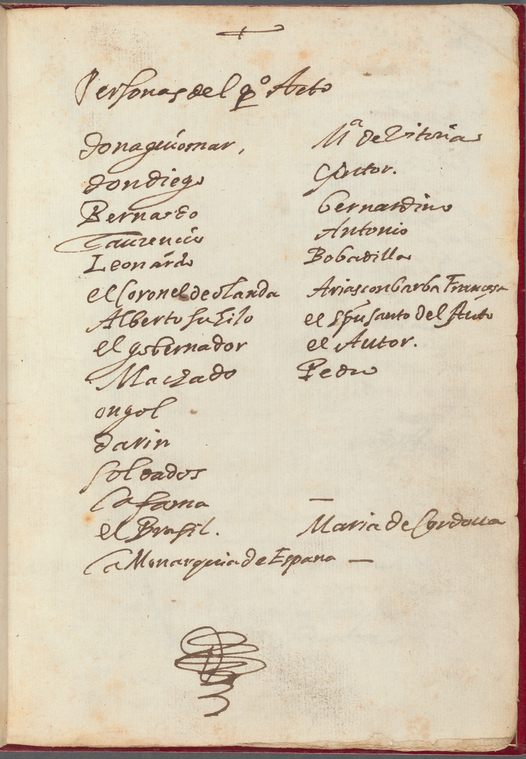 Personas del pº Acto
doña guiomar, Mª de Vitoria
don diego Autor.
Bernardo bernardino
Laurencio Antonio
Leonardo Bobadilla
el Coronel de olanda Arias con barba Francesa
Alberto su hijo el del Auto
el gobernador el Autor.
Machado Pedro
ongol
darin
soldados
la fama
el Brasil. Maria de Cordoua
la Monarquia de España